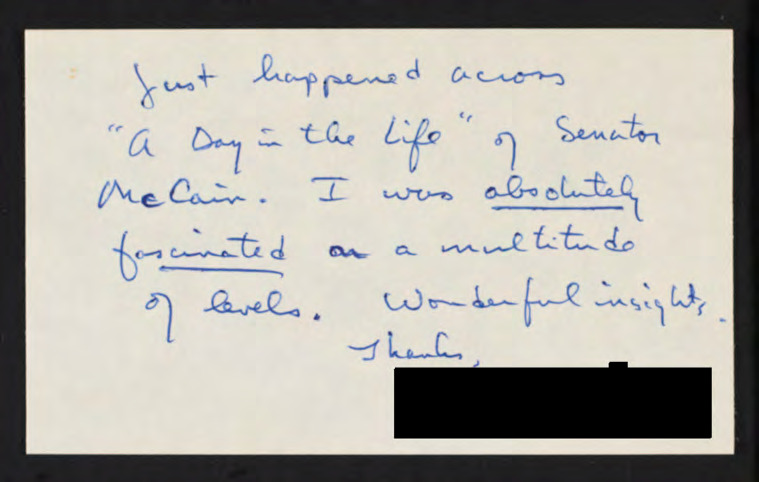 Just happened across
"A Day in the Life" of Senator
McCain. I was absolutely
fascinated on a multitude
of levels. Wonderful insights.
Thanks,